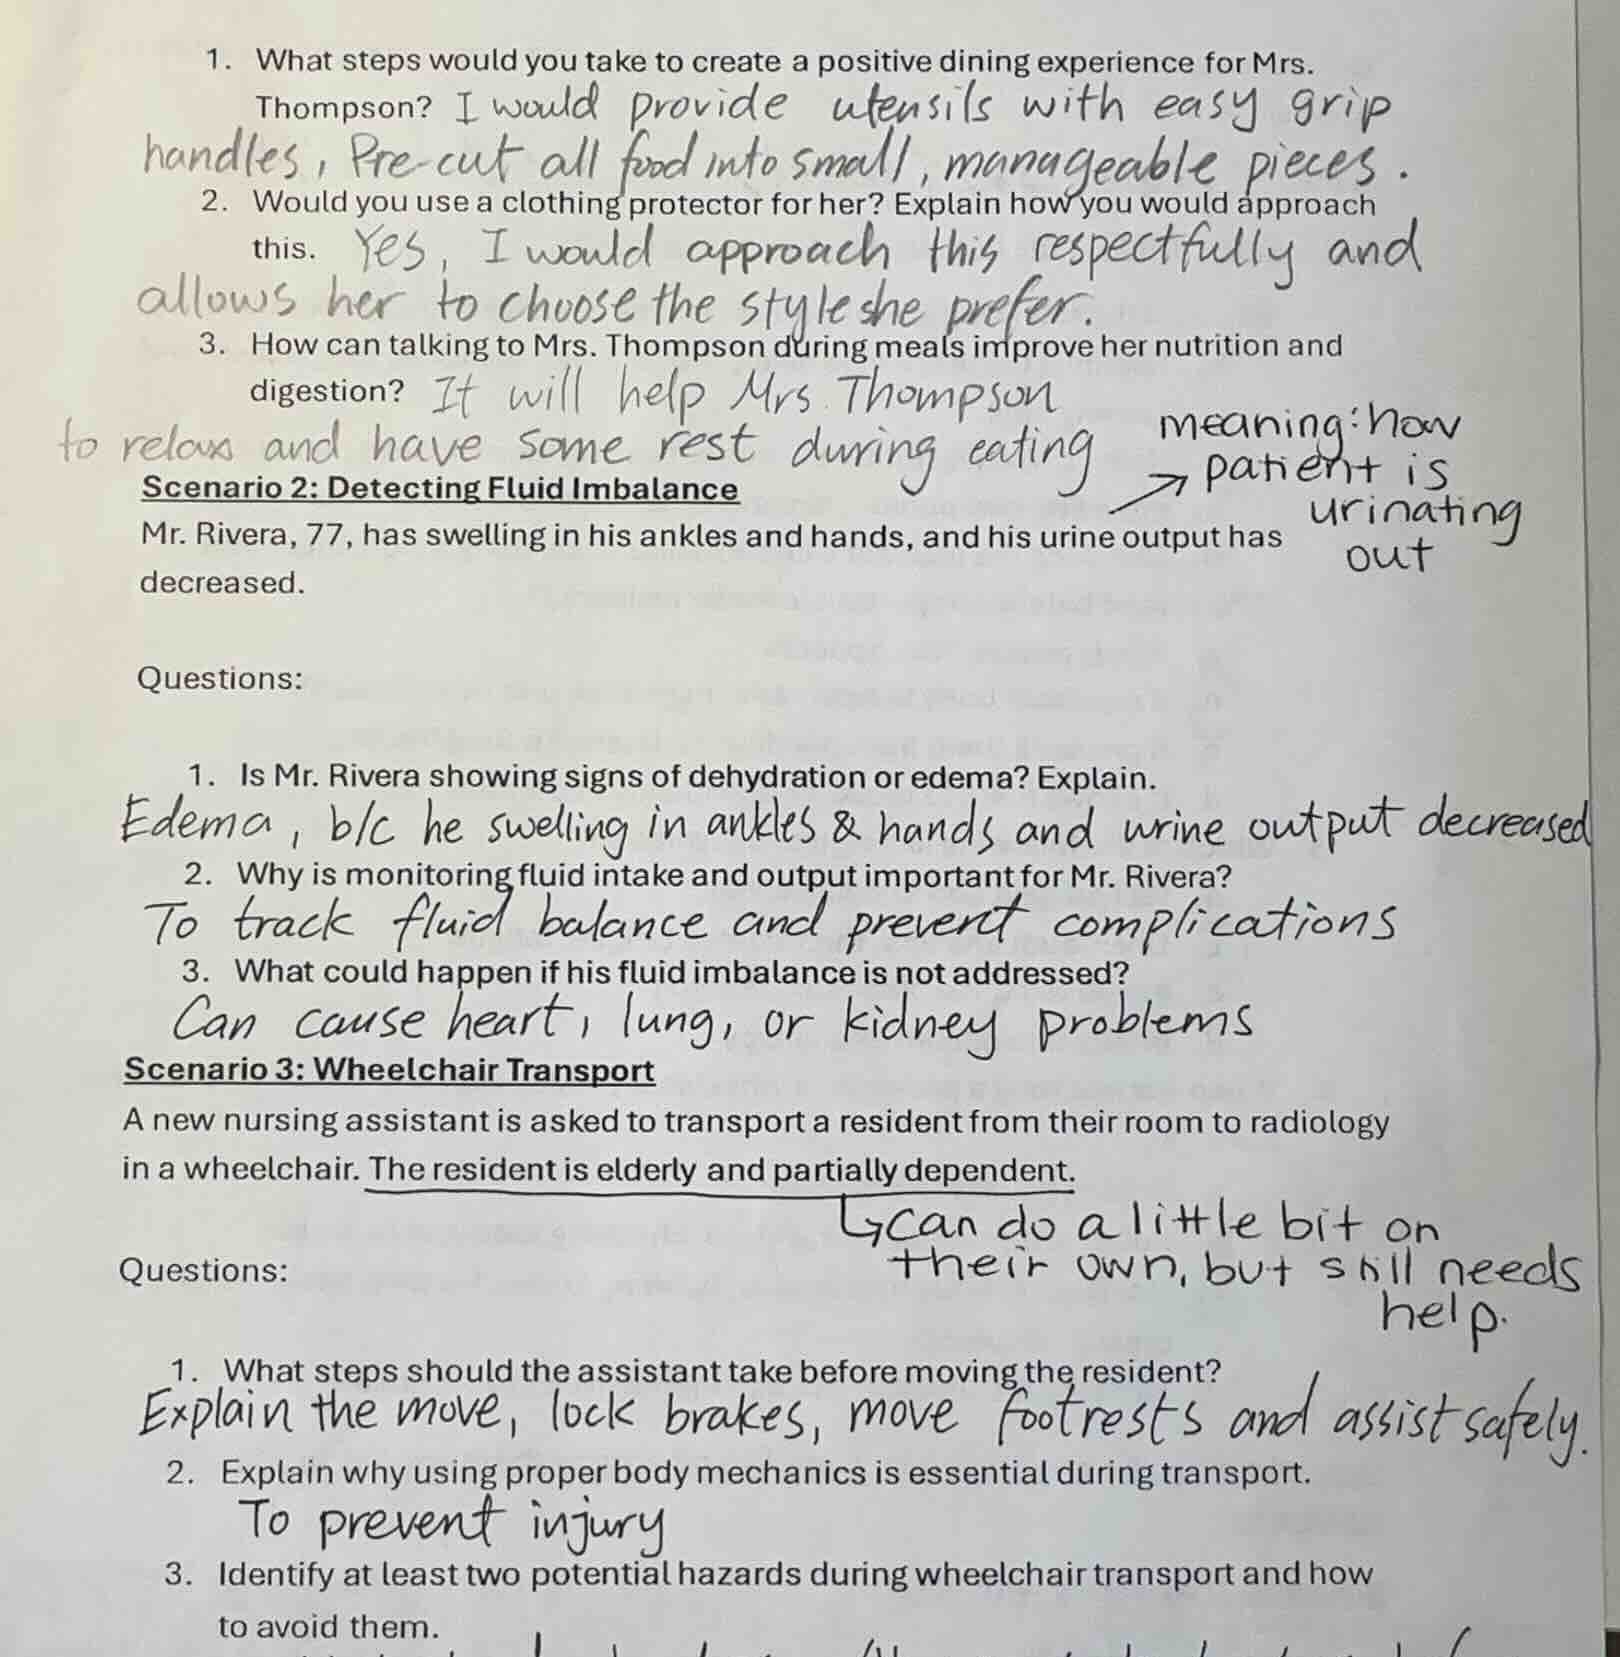 1. What steps would you take to create a positive dining experience for Mrs.
Thompson? I would provide utensils with easy grip
handles, Pre-cut all food into small, manageable pieces.
2. Would you use a clothing protector for her? Explain how you would approach
this. Yes, I would approach this respectfully and
allows her to choose the style she prefer.
3. How can talking to Mrs. Thompson during meals improve her nutrition and
digestion? It will help Mrs. Thompson
to relax and have some rest during eating
meaning: how
patient is
urinating
out
Scenario 2: Detecting Fluid Imbalance
Mr. Rivera, 77, has swelling in his ankles and hands, and his urine output has
decreased.
Questions:
1. Is Mr. Rivera showing signs of dehydration or edema? Explain.
Edema, b/c he swelling in ankles & hands and urine output decreased
2. Why is monitoring fluid intake and output important for Mr. Rivera?
To track fluid balance and prevent complications
3. What could happen if his fluid imbalance is not addressed?
Can cause heart, lung, or kidney problems
Scenario 3: Wheelchair Transport
A new nursing assistant is asked to transport a resident from their room to radiology
in a wheelchair. The resident is elderly and partially dependent.
can do a little bit on
their own, but still needs
help.
Questions:
1. What steps should the assistant take before moving the resident?
Explain the move, lock brakes, move footrests and assist safely.
2. Explain why using proper body mechanics is essential during transport.
To prevent injury
3. Identify at least two potential hazards during wheelchair transport and how
to avoid them.